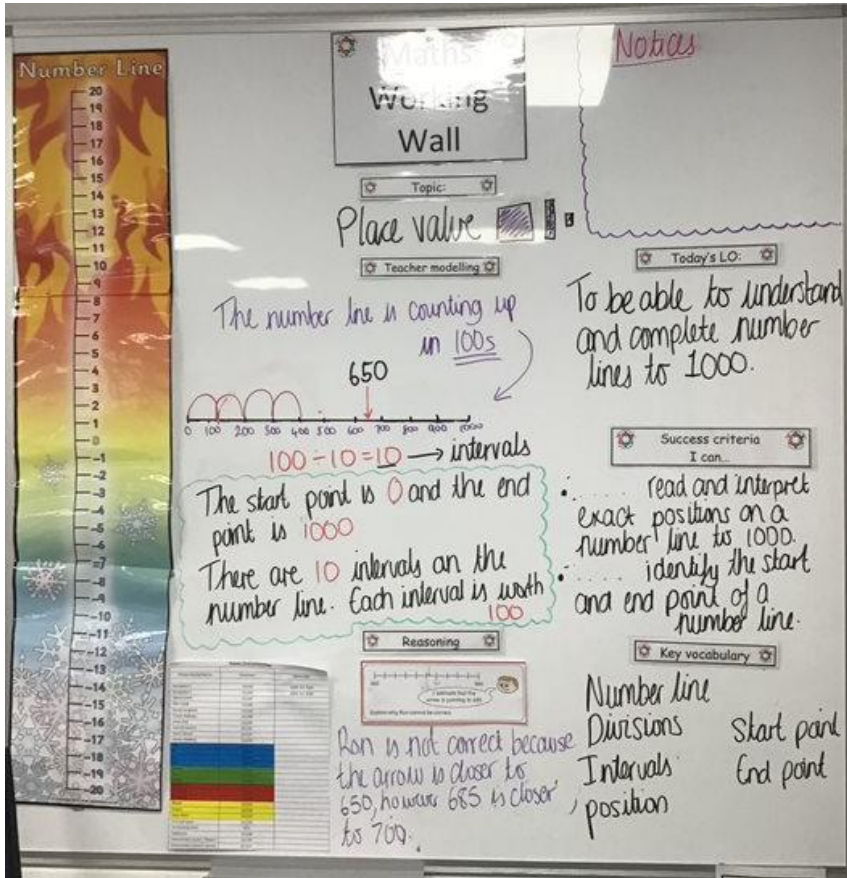 Number Line
20
19
18
17
16
15
14
13
12
11
10
9
8
7
6
5
4
3
2
1
0
-1
-2
-3
-4
-5
-6
-7
-8
-9
-10
-11
-12
-13
-14
-15
-16
-17
-18
-19
-20
Maths
Working
Wall
Topic:
Place value
Teacher modelling
The number line is counting up
in 100s
650
0 100 200 300 400 500 600 700 800 900 1000
100 - 10 = 10 → intervals
The start point is 0 and the end
point is 1000
There are 10 intervals on the
number line. Each interval is worth
100
Reasoning
I estimate that the
arrow is pointing to 685
Explain why Ron cannot be correct.
Ron is not correct because
the arrow is closer to
650, however 685 is closer
to 700.
Notices
Today's LO:
To be able to understand
and complete number
lines to 1000.
Success criteria
I can...
..... read and interpret
exact positions on a
number line to 1000.
..... identify the start
and end point of a
number line.
Key vocabulary
Number line
Divisions Start point
Intervals End point
position